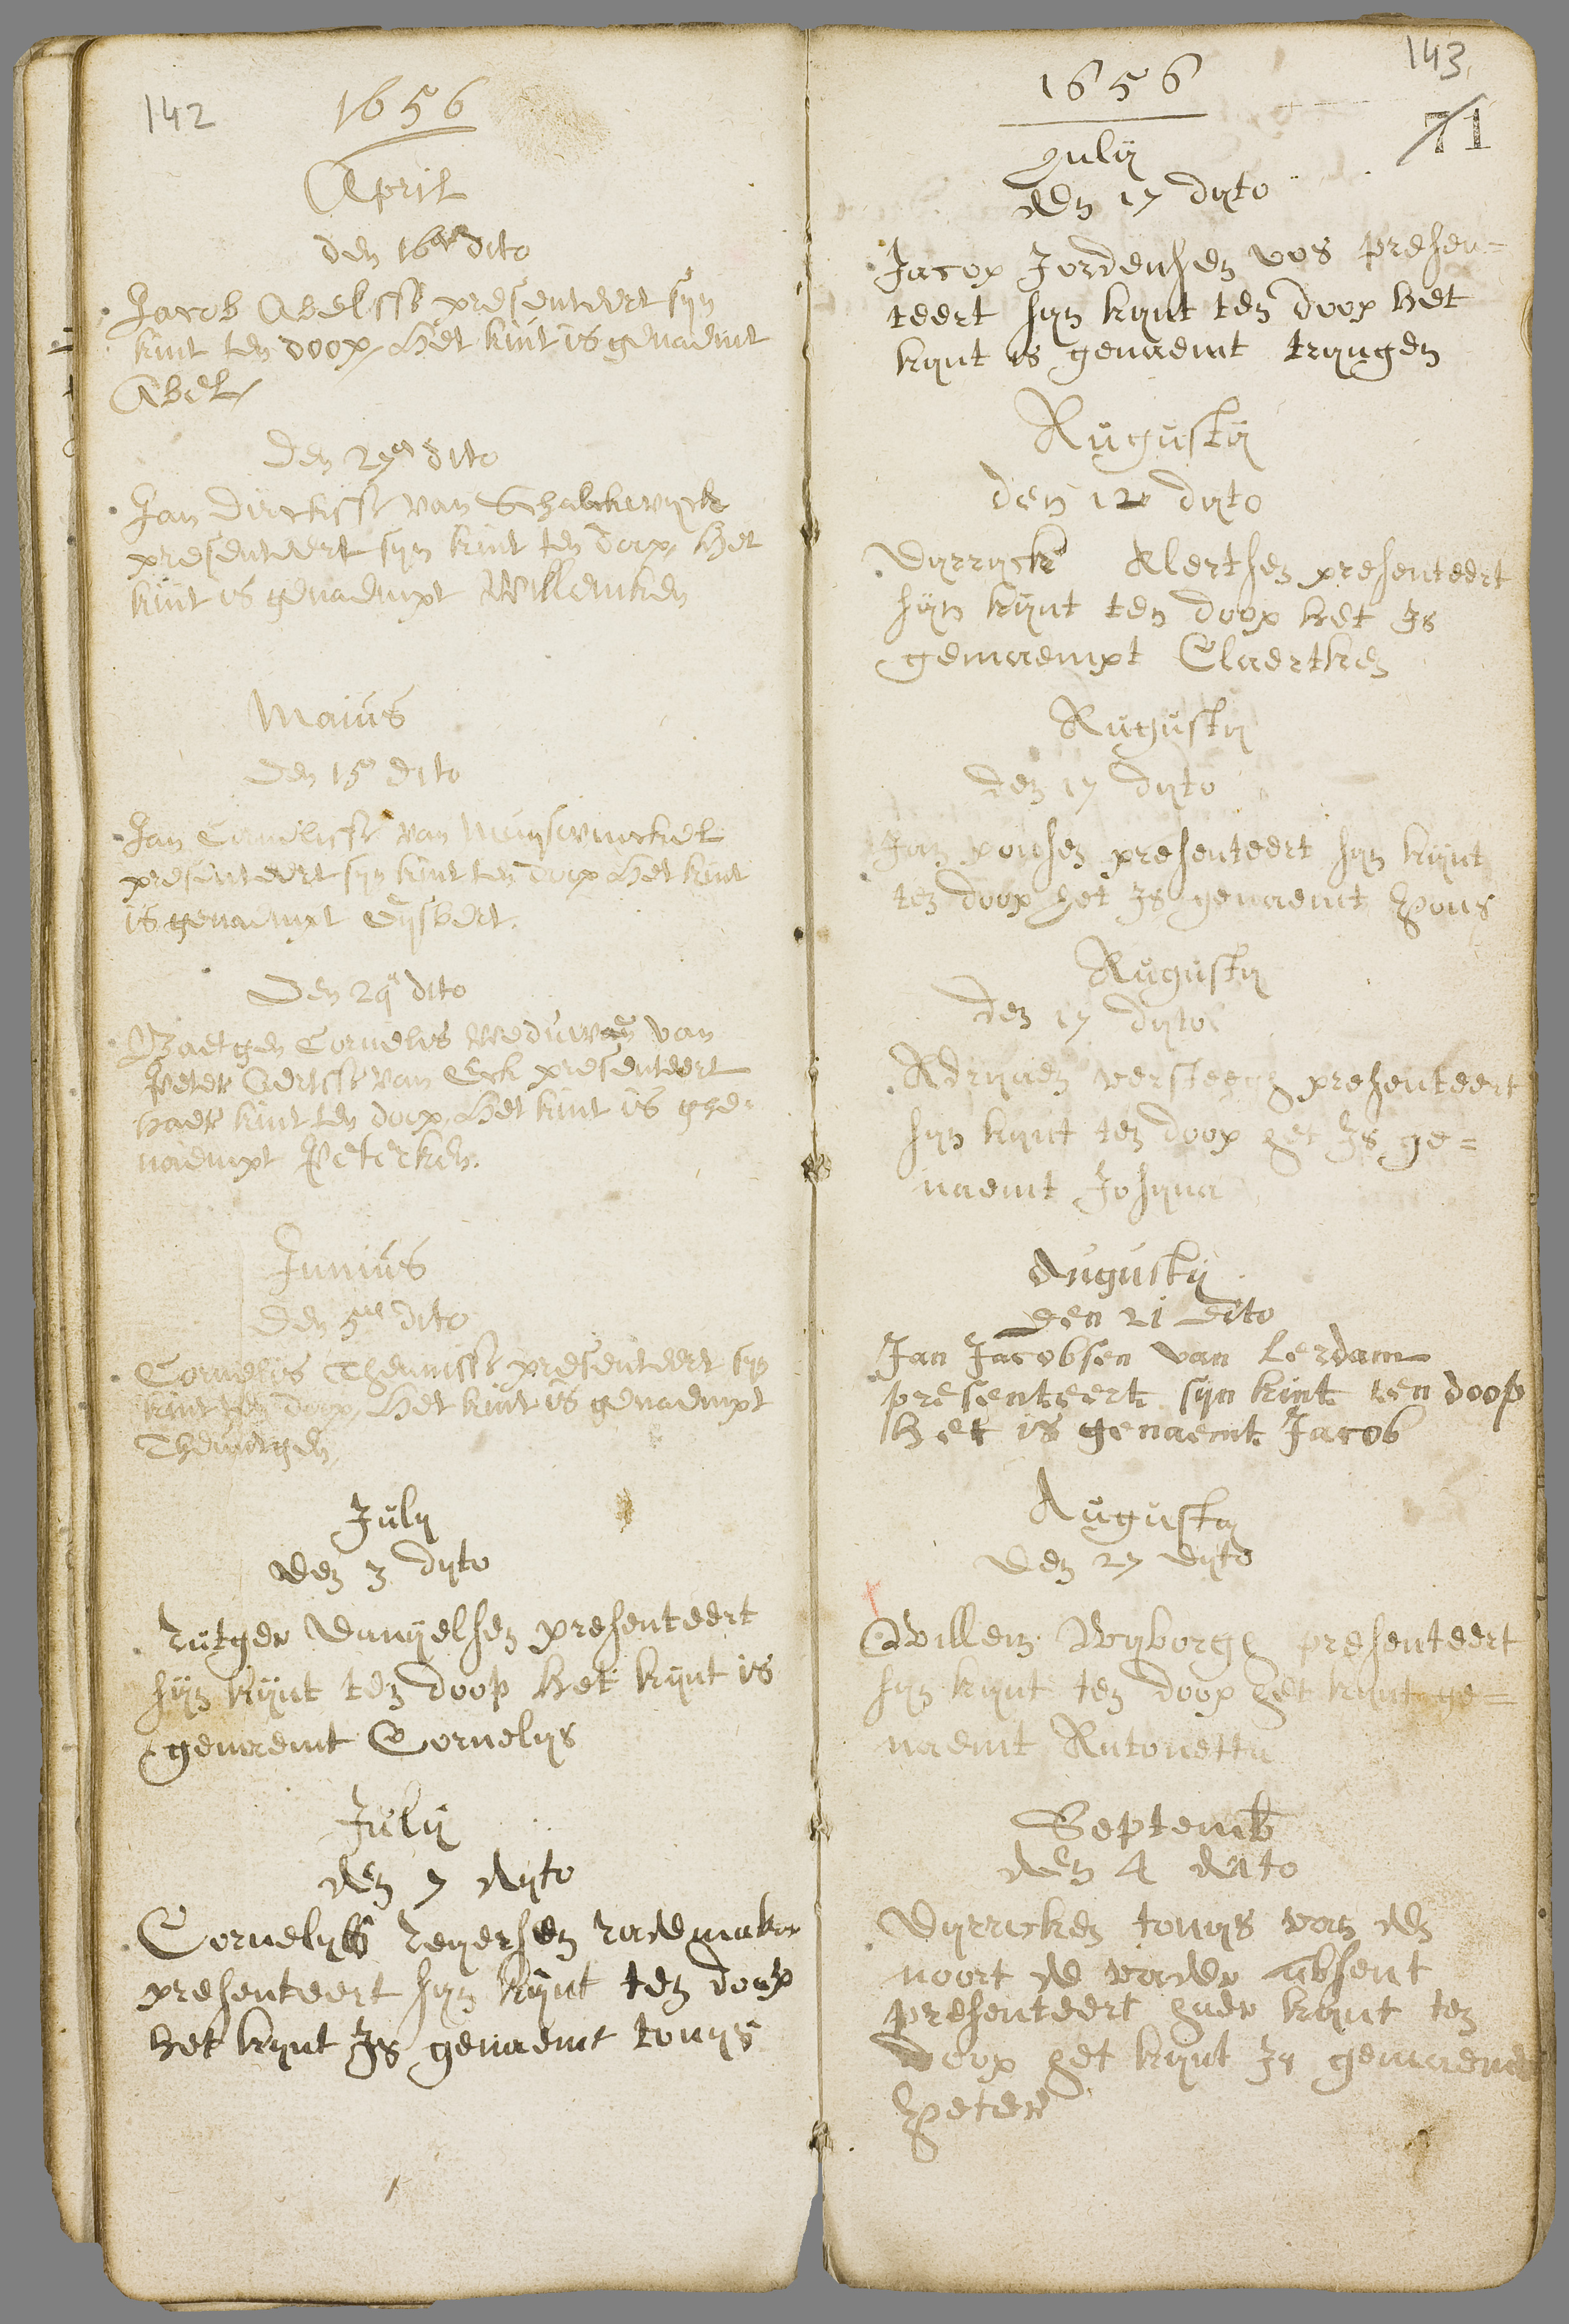 142
1656
April
den 16en dito
Jacob Abelsse presenteert syn
kint ten doop, Het kint is genaemt
Abel,
Den 27en dito
Jan Dircksse van Schalckwyck
presenteert syn kint ten doop, Het
kint is genaempt Willemken
Maius
Den 15 dito
Jan Cornelisse van
presenteert syn kint ten doop Het kint
is genaempt Gysbert.
Den 29 dito
Baetgen Cornelis weduwe van
Peter Aertsse van Eck presenteert
haer kint ten doop, Het kint is ghe-
naempt Peterken.
Junius
Den 5en dito
Cornelis Theunisse presenteert syn
kint ten doop, Het kint is genaempt
Theuntgen,
July
den 3 dyto
Rutger Danyelsen presenteert
syn kynt ten doop het kynt is
genaemt Cornelys
July
den 7 dyto
Cornelys Reyersen Rademaker
presenteert syn kynt ten doop
het kynt Is genaemt tonys
143
71
1656
July
den 17 dyto
Jacop Jordensen vos presen=
teert syn kynt ten doop het
kynt is genaemt tryngen
Augusty
den 12 dyto
Dyrryck Alertsen presenteert
syn kynt ten doop het Is
genaempt Elaertken
Augusty
den 17 dyto
Jan ponsen presenteert syn kynt
ten doop het Is genaemt Pons
Augusty
den 17 dyto
Adryaen versteegh presenteert
syn kynt ten doop het Is ge=
naemt Josyna
Augusty
den 21 dito
Jan Jacobsen van Lerdam
presenteert syn kint ten doop
Het is genaemt Jacob
Augusty
den 27 dyto
Willem Wyborgh presenteert
syn kynt ten doop het kynt ge=
naemt Antonetta
Septemb
den 4 dito
Dyrricken tonys van de
noort de vader absent
presenteert haer kynt ten
doop het kynt Is genaemt
Peter